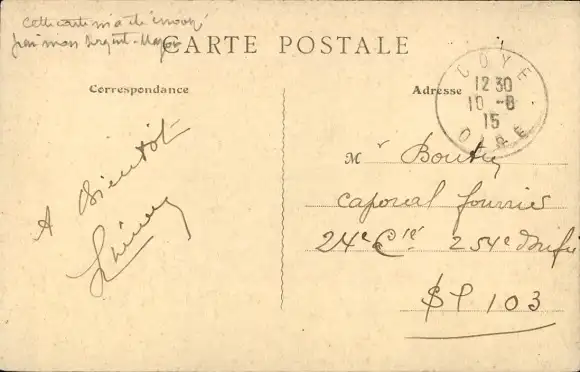 cette carte m'a été envoyé
par mon Sergent-Major
CARTE POSTALE
Correspondance
Adresse
COYE
12 30
10 -8
15
OISE
A Bientôt
Mr Boutry
caporal fourrier
24e Cie 254e
SP 103